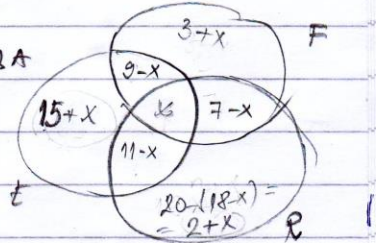 3+x F
A
9-x
15+x x 7-x
11-x
E
20-(18-x)=
=2+x R